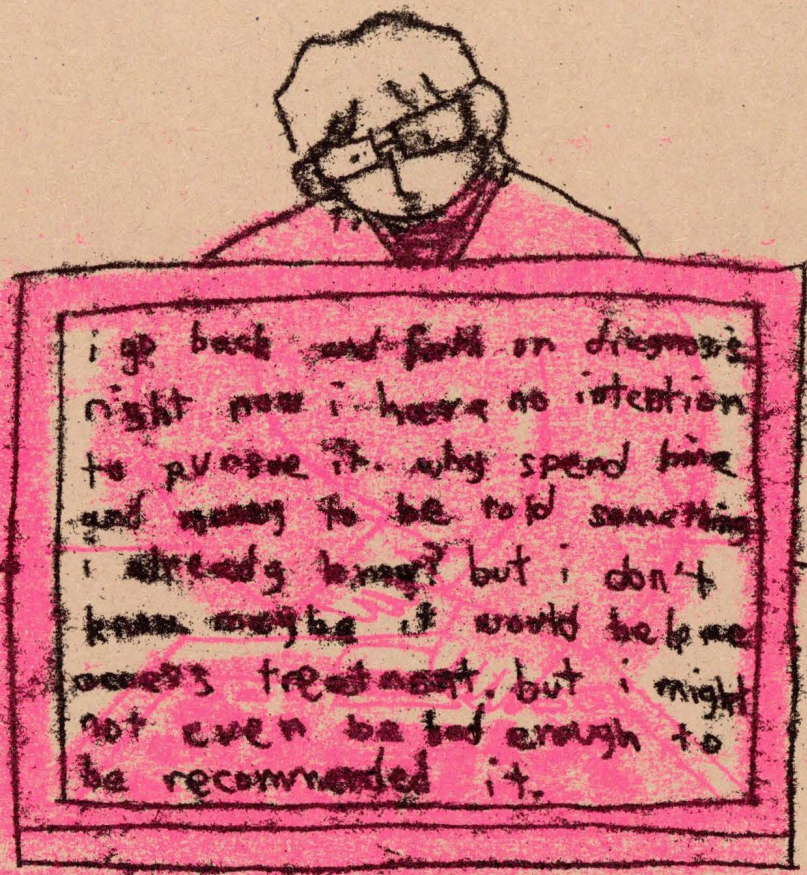 i go back and forth on diagnosis
right now i have no intention
to pursue it. why spend time
and money to be told something
i already know? but i don't
know maybe it would help me
access treatment. but i might
not even be bad enough to
be recommended it.